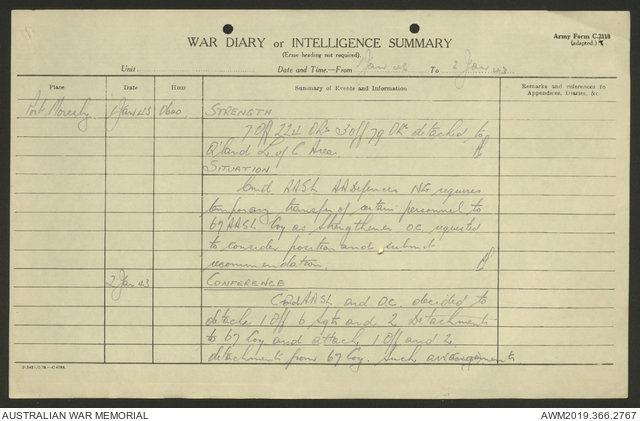 WAR DIARY or INTELLIGENCE SUMMARY
(Erase heading not required).
Army Form C.2118
(adapted)
Unit
Date and Time.—From 1 Jan 43 To 2 Jan 43
Place Date Hour Summary of Events and Information Remarks and references to Appendices, Diaries, &c
Port Moresby 1 Jan 43 0600 STRENGTH
7 Off 224 ORs 3 Off 79 ORs detached to
Q'land L of C Area.
SITUATION
Comd AASL AA Defences NG requires
temporary transfer of certain personnel to
67 AASL Coy as strengthener O.C. requested
to consider position and submit
recommendation.
2 Jan 43 CONFERENCE
Comd AASL and O.C. decided to
detach 1 Off 6 Sgts and 2 Detachments
to 67 Coy and attach 1 Off and 2
detachments from 67 Coy. Such arrangements
AUSTRALIAN WAR MEMORIAL AWM2019.366.2767